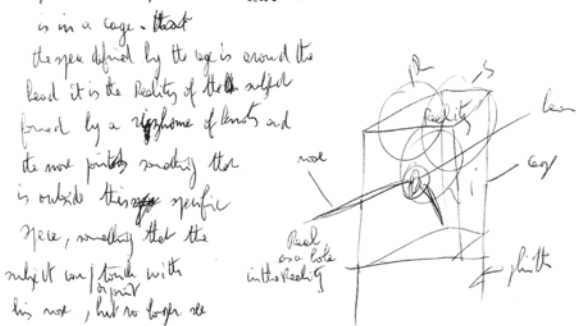 is in a cage. that
the space defined by the cage is around the
head it is the Reality of the subject
formed by a rizhome of knots and
the nose points something that
is outside this specific
space, something that the
subject can/touch with
or point
his nose, but no longer see
R
S
Reality
i
nose
cage
Real
as a hole
in the Reality
plinth